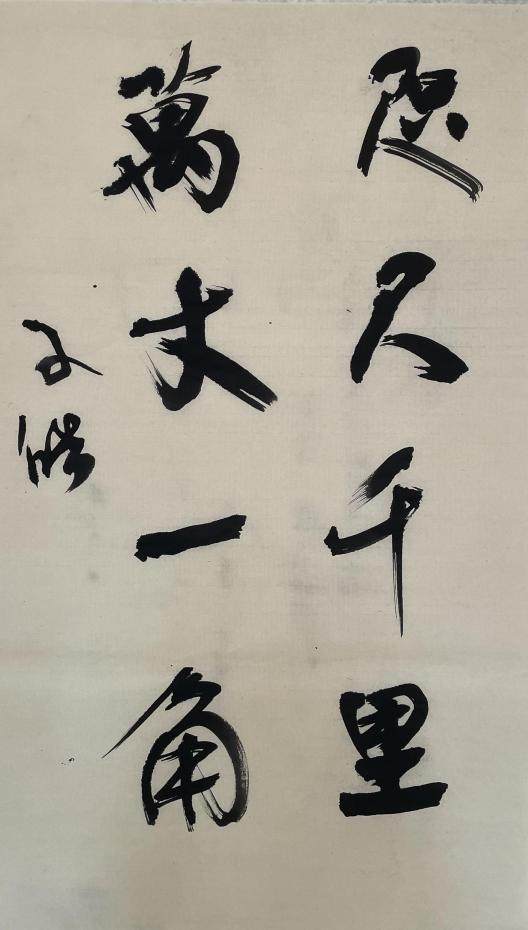 咫尺千里
萬丈一角
文皓